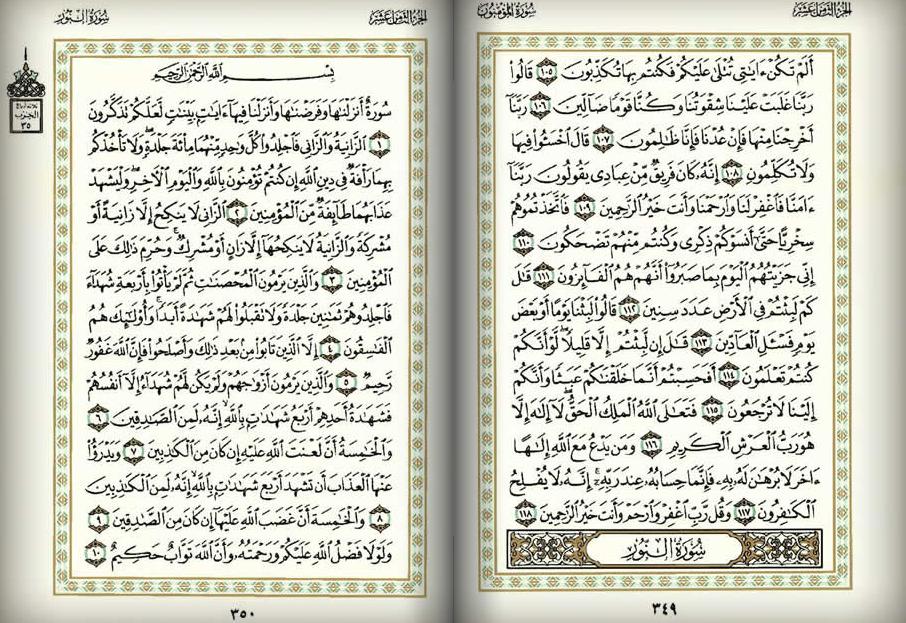 الجزء الثامن عشر
سورة المؤمنون
ألم تكن ءايتى تتلى عليكم فكنتم بها تكذبون ١٠٥ قالوا
ربنا غلبت علينا شقوتنا وكنا قوما ضالين ١٠٦ ربنا
أخرجنا منها فإن عدنا فإنا ظلمون ١٠٧ قال اخسئوا فيها
ولا تكلمون ١٠٨ إنه كان فريق من عبادى يقولون ربنا
ءامنا فاغفر لنا وارحمنا وأنت خير الرحمين ١٠٩ فاتخذتموهم
سخريا حتى أنسوكم ذكرى وكنتم منهم تضحكون ١١٠
إنى جزيتهم اليوم بما صبروا أنهم هم الفايزون ١١١ قل
كم لبثتم فى الأرض عدد سنين ١١٢ قالوا لبثنا يوما أو بعض
يوم فسئل العادين ١١٣ قل إن لبثتم إلا قليلا لو أنكم
كنتم تعلمون ١١٤ أفحسبتم أنما خلقنكم عبثا وأنكم
إلينا لا ترجعون ١١٥ فتعلى الله الملك الحق لا إله إلا
هو رب العرش الكريم ١١٦ ومن يدع مع الله إلها
ءاخر لا برهن له به فإنما حسابه عند ربه إنه لا يفلح
الكفرون ١١٧ وقل رب اغفر وارحم وأنت خير الرحمين ١١٨
سورة النور
٣٤٩
الجزء الثامن عشر
سورة النور
ثلاثة أرباع
الحزب
٣٥
بسم الله الرحمن الرحيم
سورة أنزلنها وفرضنها وأنزلنا فيها ءايت بينت لعلكم تذكرون
١ الزانية والزانى فاجلدوا كل وحد منهما مائة جلدة ولا تأخذكم
بهما رأفة فى دين الله إن كنتم تؤمنون بالله واليوم الآخر وليشهد
عذابهما طايفة من المؤمنين ٢ الزانى لا ينكح إلا زانية أو
مشركة والزانية لا ينكحها إلا زان أو مشرك وحرم ذلك على
المؤمنين ٣ والذين يرمون المحصنت ثم لم يأتوا بأربعة شهداء
فاجلدوهم ثمنين جلدة ولا تقبلوا لهم شهدة أبدا وأولئك هم
الفسقون ٤ إلا الذين تابوا من بعد ذلك وأصلحوا فإن الله غفور
رحيم ٥ والذين يرمون أزوجهم ولم يكن لهم شهداء إلا أنفسهم
فشهدة أحدهم أربع شهدت بالله إنه لمن الصدقين ٦
والخمسة أن لعنت الله عليه إن كان من الكذبين ٧ ويدرؤا
عنها العذاب أن تشهد أربع شهدت بالله إنه لمن الكذبين
٨ والخمسة أن غضب الله عليها إن كان من الصدقين ٩
ولولا فضل الله عليكم ورحمته وأن الله تواب حكيم ١٠
٣٥٠